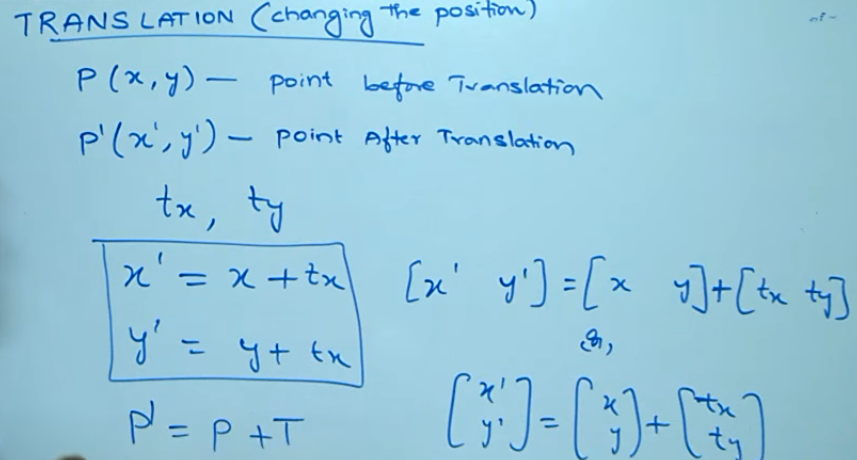 TRANSLATION (changing the position)
P(x,y) — point before Translation
P'(x',y') — point After Translation
tx, ty
x' = x + tx
y' = y + tx
P' = P + T
[x' y'] = [x y] + [tx ty]
or,
[x' y'] = [x y] + [tx ty]